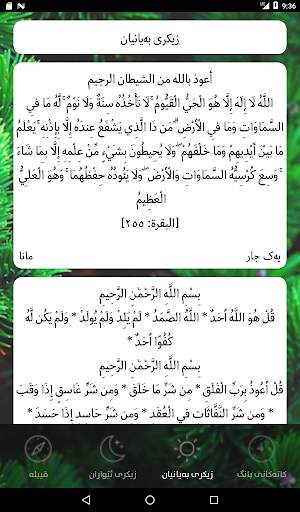 9:36
زیکری بەیانیان
أعوذ بالله من الشيطان الرجيم
اللَّهُ لَا إِلَهَ إِلَّا هُوَ الْحَيُّ الْقَيُّومُ ۚ لَا تَأْخُذُهُ سِنَةٌ وَلَا نَوْمٌ ۚ لَّهُ مَا فِي
السَّمَاوَاتِ وَمَا فِي الْأَرْضِ ۗ مَن ذَا الَّذِي يَشْفَعُ عِندَهُ إِلَّا بِإِذْنِهِ ۚ يَعْلَمُ
مَا بَيْنَ أَيْدِيهِمْ وَمَا خَلْفَهُمْ ۖ وَلَا يُحِيطُونَ بِشَيْءٍ مِّنْ عِلْمِهِ إِلَّا بِمَا شَاءَ
ۚ وَسِعَ كُرْسِيُّهُ السَّمَاوَاتِ وَالْأَرْضَ ۖ وَلَا يَئُودُهُ حِفْظُهُمَا ۚ وَهُوَ الْعَلِيُّ
الْعَظِيمُ
[البقرة: ٢٥٥]
یەک جار
مانا
بِسْمِ اللَّهِ الرَّحْمَٰنِ الرَّحِيمِ
قُلْ هُوَ اللَّهُ أَحَدٌ * اللَّهُ الصَّمَدُ * لَمْ يَلِدْ وَلَمْ يُولَدْ * وَلَمْ يَكُن لَّهُ
كُفُوًا أَحَدٌ *
بِسْمِ اللَّهِ الرَّحْمَٰنِ الرَّحِيمِ
قُلْ أَعُوذُ بِرَبِّ الْفَلَقِ * مِن شَرِّ مَا خَلَقَ * وَمِن شَرِّ غَاسِقٍ إِذَا وَقَبَ *
وَمِن شَرِّ النَّفَّاثَاتِ فِي الْعُقَدِ * وَمِن شَرِّ حَاسِدٍ إِذَا حَسَدَ *
کاتەکانی بانگ
زیکری بەیانیان
زیکری ئێواران
قیبلە